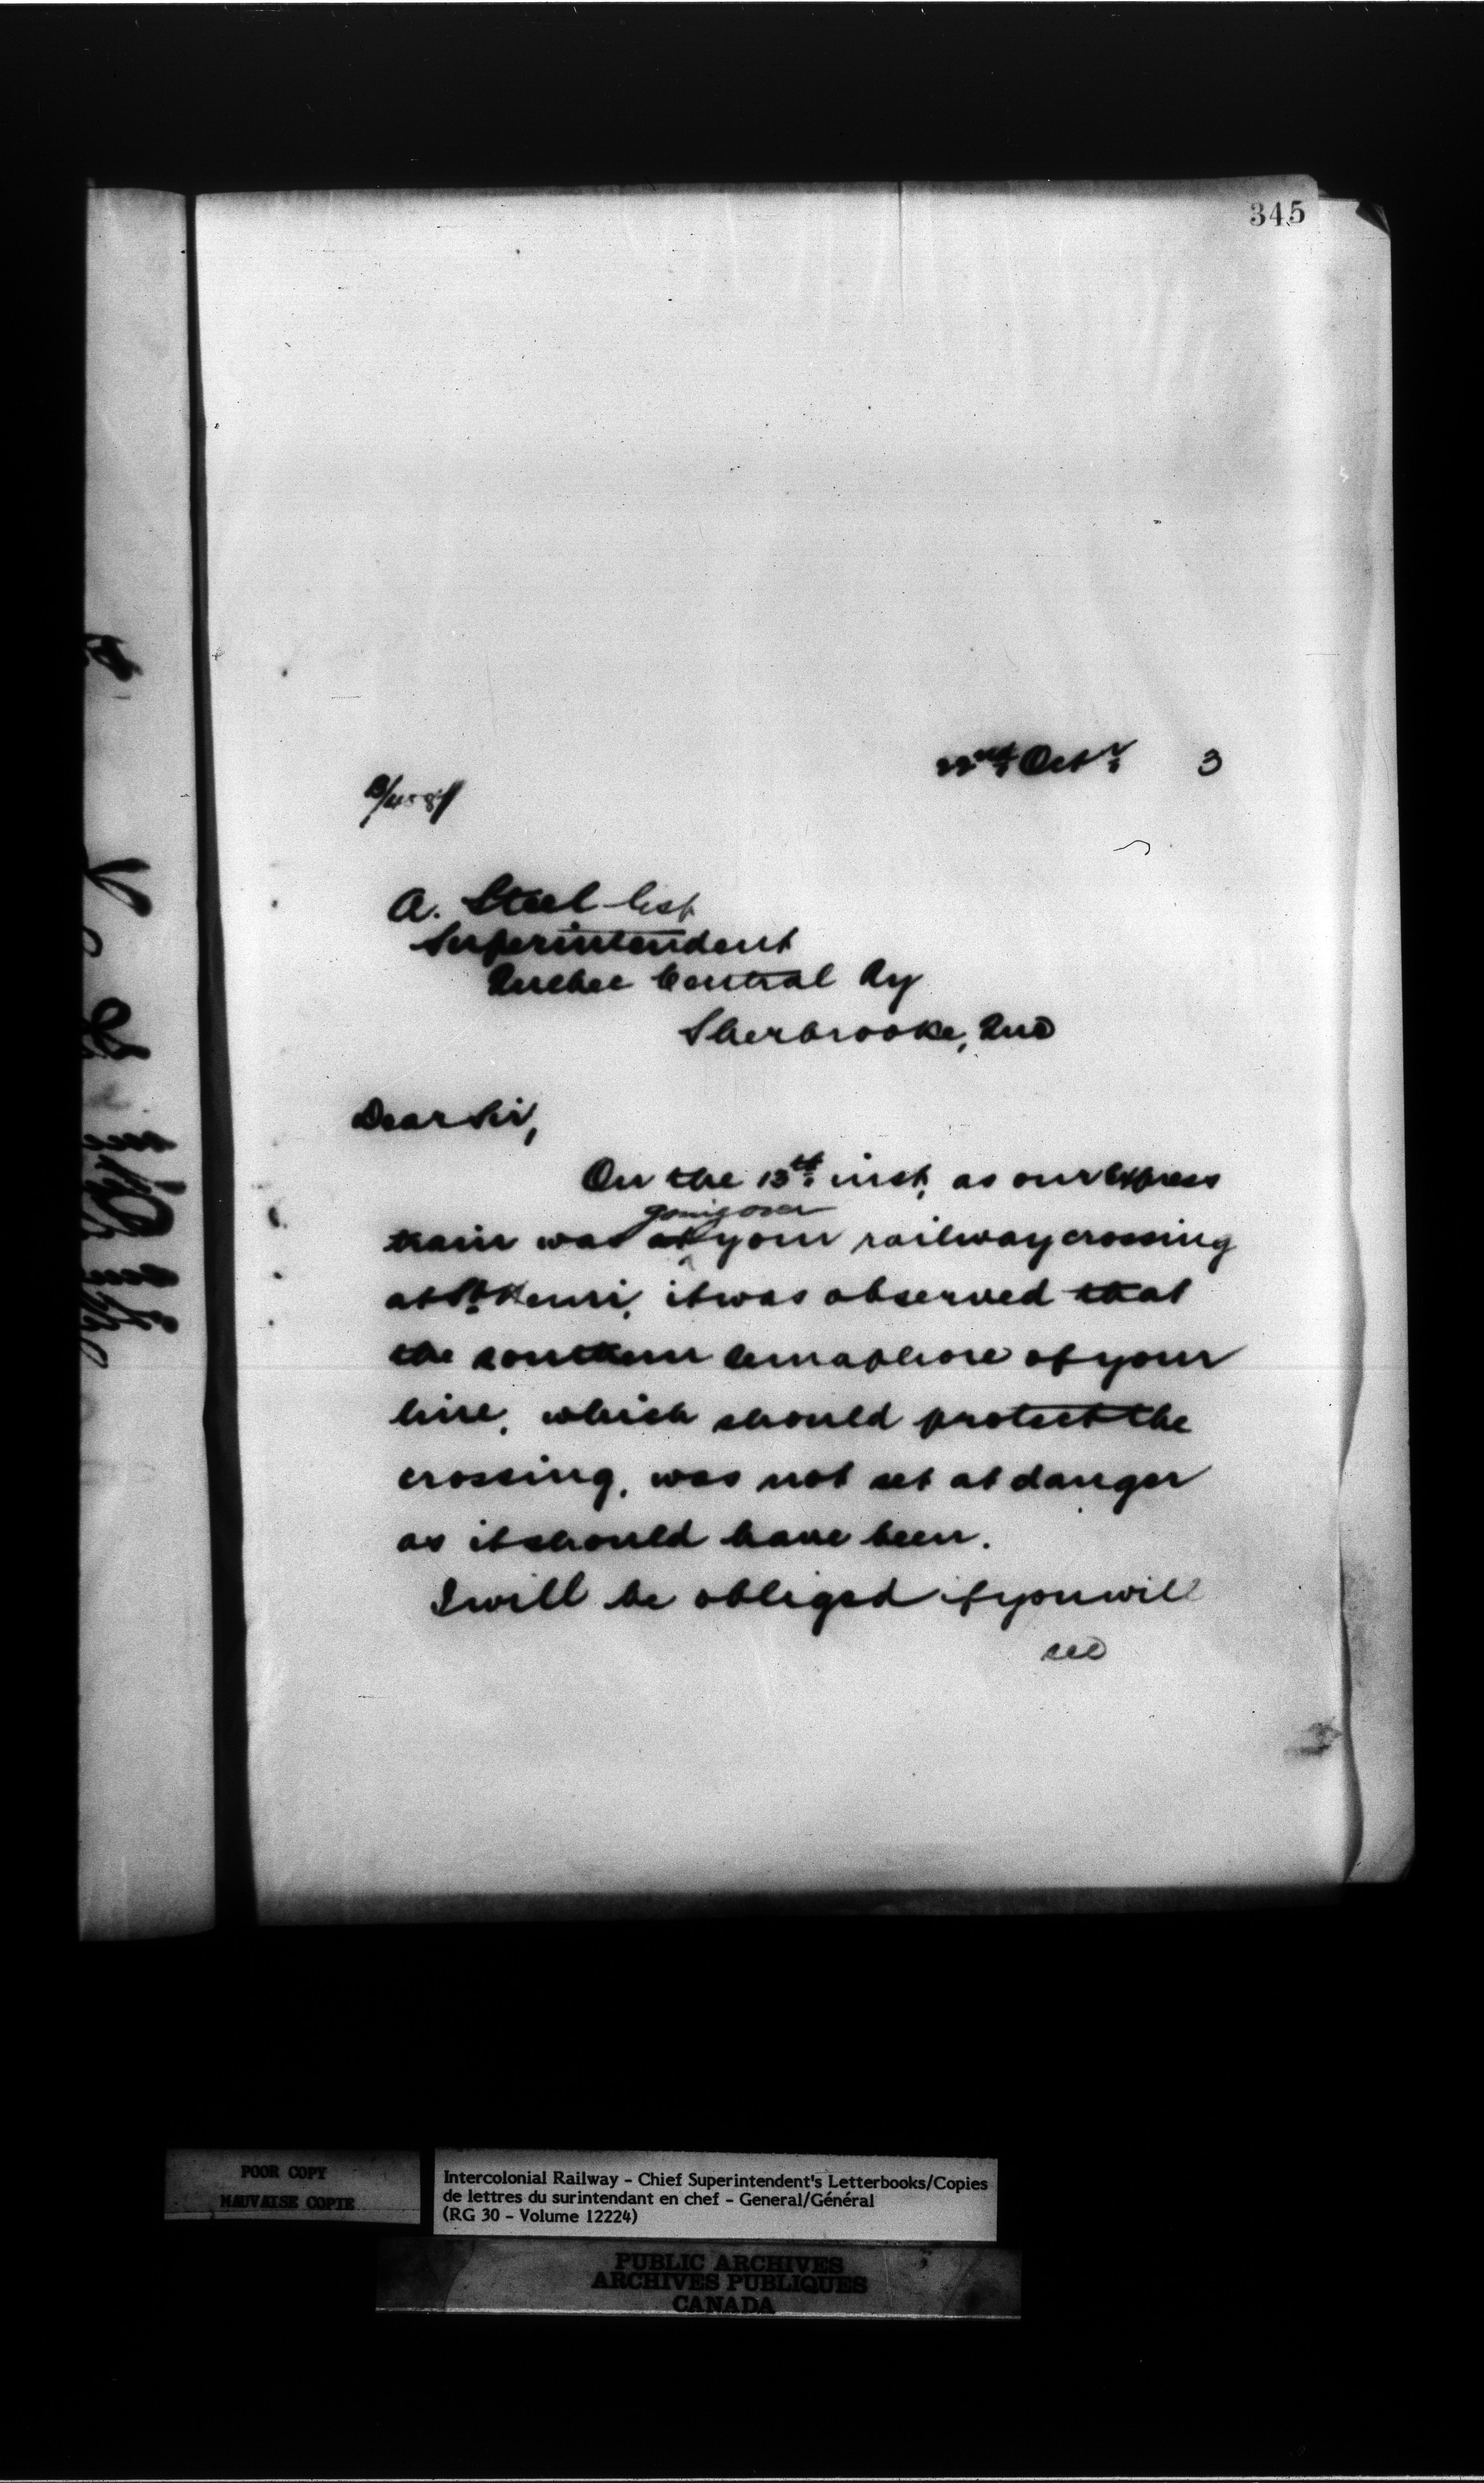 345
22nd Octr. 3
A. Steel Esq
Superintendent
Quebec Central Ry
Sherbrooke, Que
Dear Sir,
On the 13th. inst, as our Express
going over
train was at your railway crossing
at St. Henri, it was observed that
the southern semaphore of your
line, which should protect the
crossing, was not set at danger
as it should have been.
I will be obliged if you will
see
POOR COPY
MAUVAISE COPIE
Intercolonial Railway - Chief Superintendent's Letterbooks/Copies
de lettres du surintendant en chef - General/Général
(RG 30 - Volume 12224)
PUBLIC ARCHIVES
ARCHIVES PUBLIQUES
CANADA